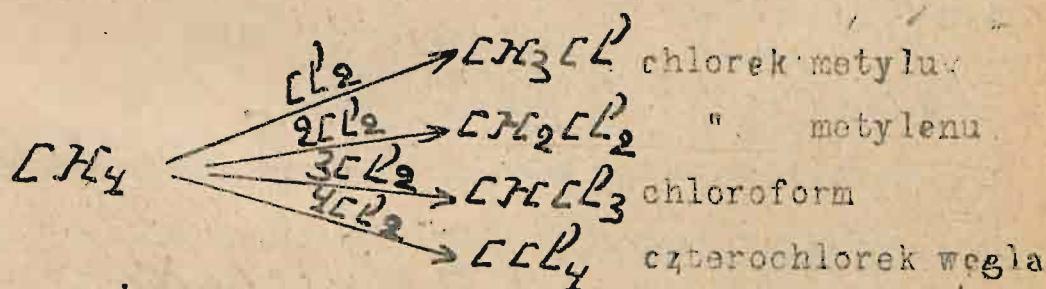 Cl2 CH3Cl chlorek metylu
2Cl2 CH2Cl2 " metylenu
CH4 3Cl2 CHCl3 chloroform
4Cl2 CCl4 czterochlorek węgla